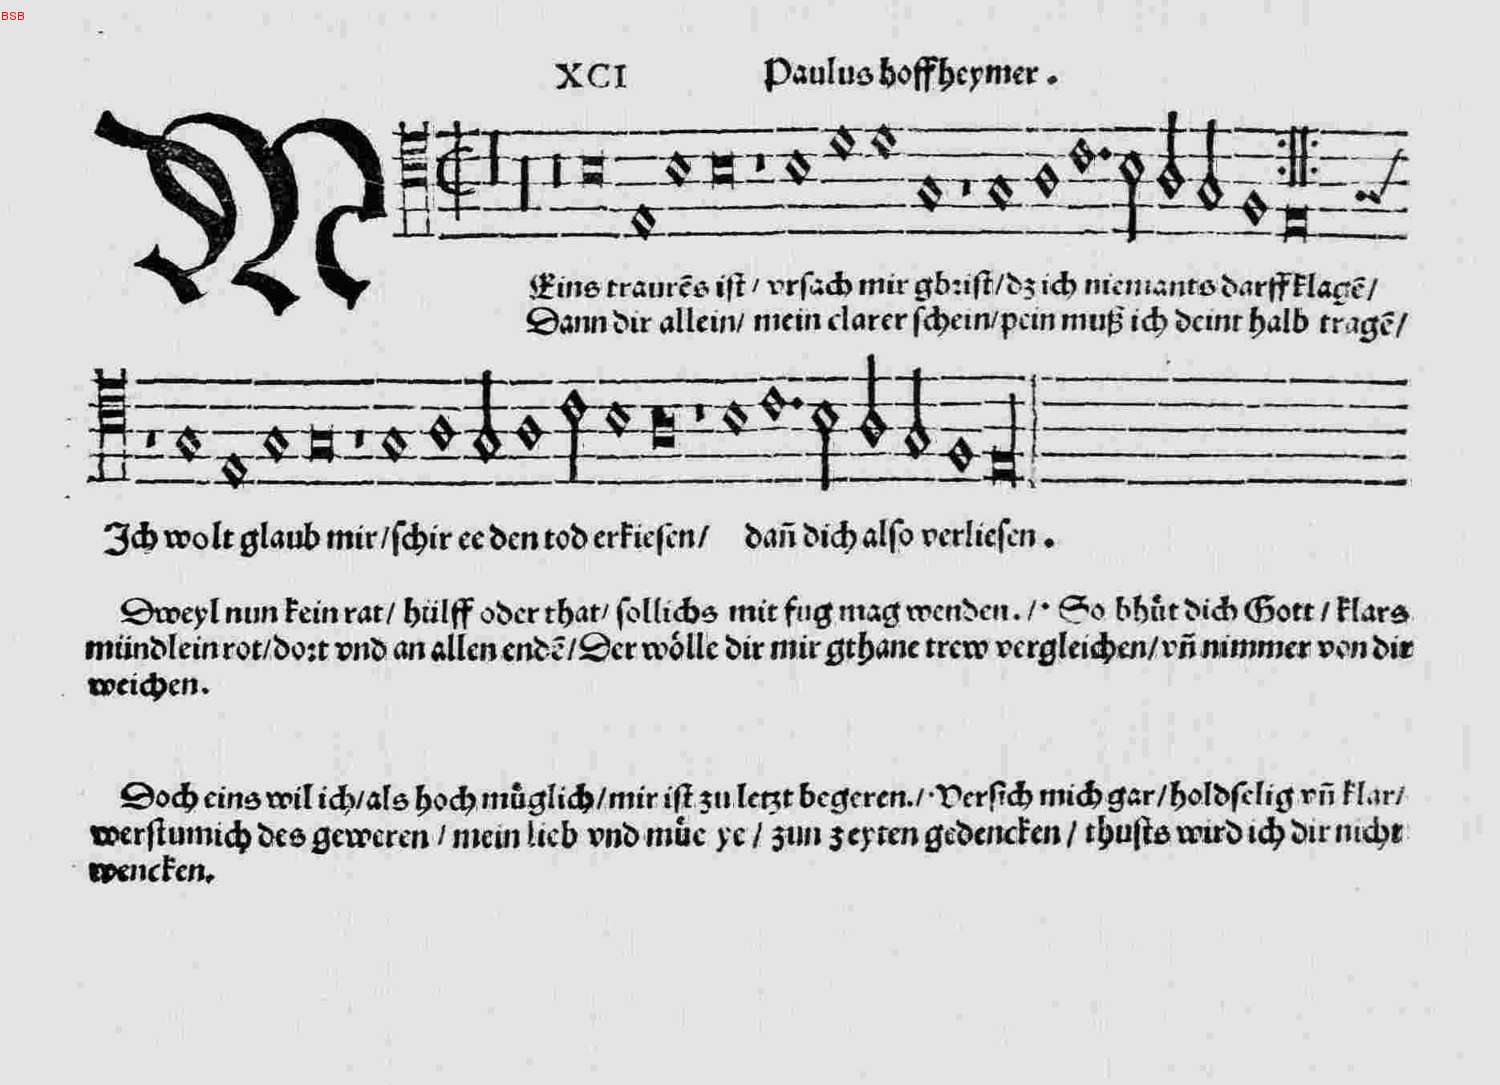 BSB
XCI Paulus hoffheymer .
MEins traurẽs ist / vrsach mir gbrist/dz ich niemants darff klagẽ/
Dann dir allein/ mein clarer schein/pein muß ich deint halb tragẽ/
Ich wolt glaub mir/schir ee den tod erkiesen/ dañ dich also verliesen .
Dweyl nun kein rat/ hülff oder that/ sollichs mit fug mag wenden./· So bhuͤt dich Gott / klars
mündlein rot/dort vnd an allen endẽ/Der woͤlle dir mir gthane trew vergleichen/vñ nimmer von dir
weichen.
Doch eins wil ich/als hoch muͤglich/mir ist zu letzt begeren./·Versich mich gar/holdselig vñ klar/
werstumich des geweren / mein lieb vnd muͤe ye / zun zeyten gedencken / thusts wird ich dir nicht
wencken.